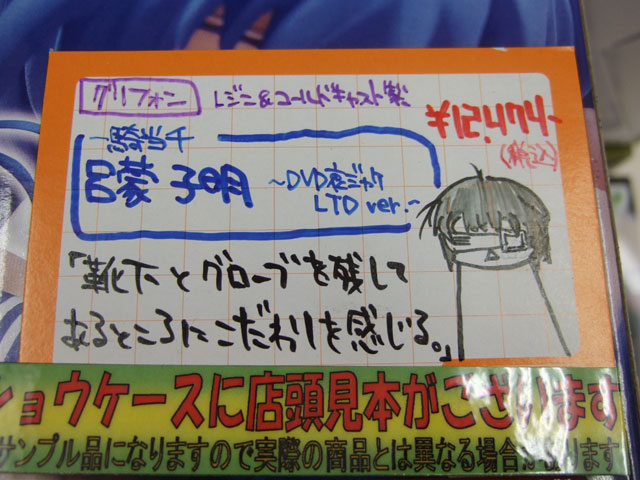 グリフォン
レジン&コールドキャスト製
¥12,474-
(税込)
一騎当千
呂蒙 子明
～DVD夜ジャケ
LTD ver.～
「靴下とグローブを残して
あるところにこだわりを感じる。」
ショウケースに店頭見本がございます
サンプル品になりますので実際の商品とは異なる場合があります